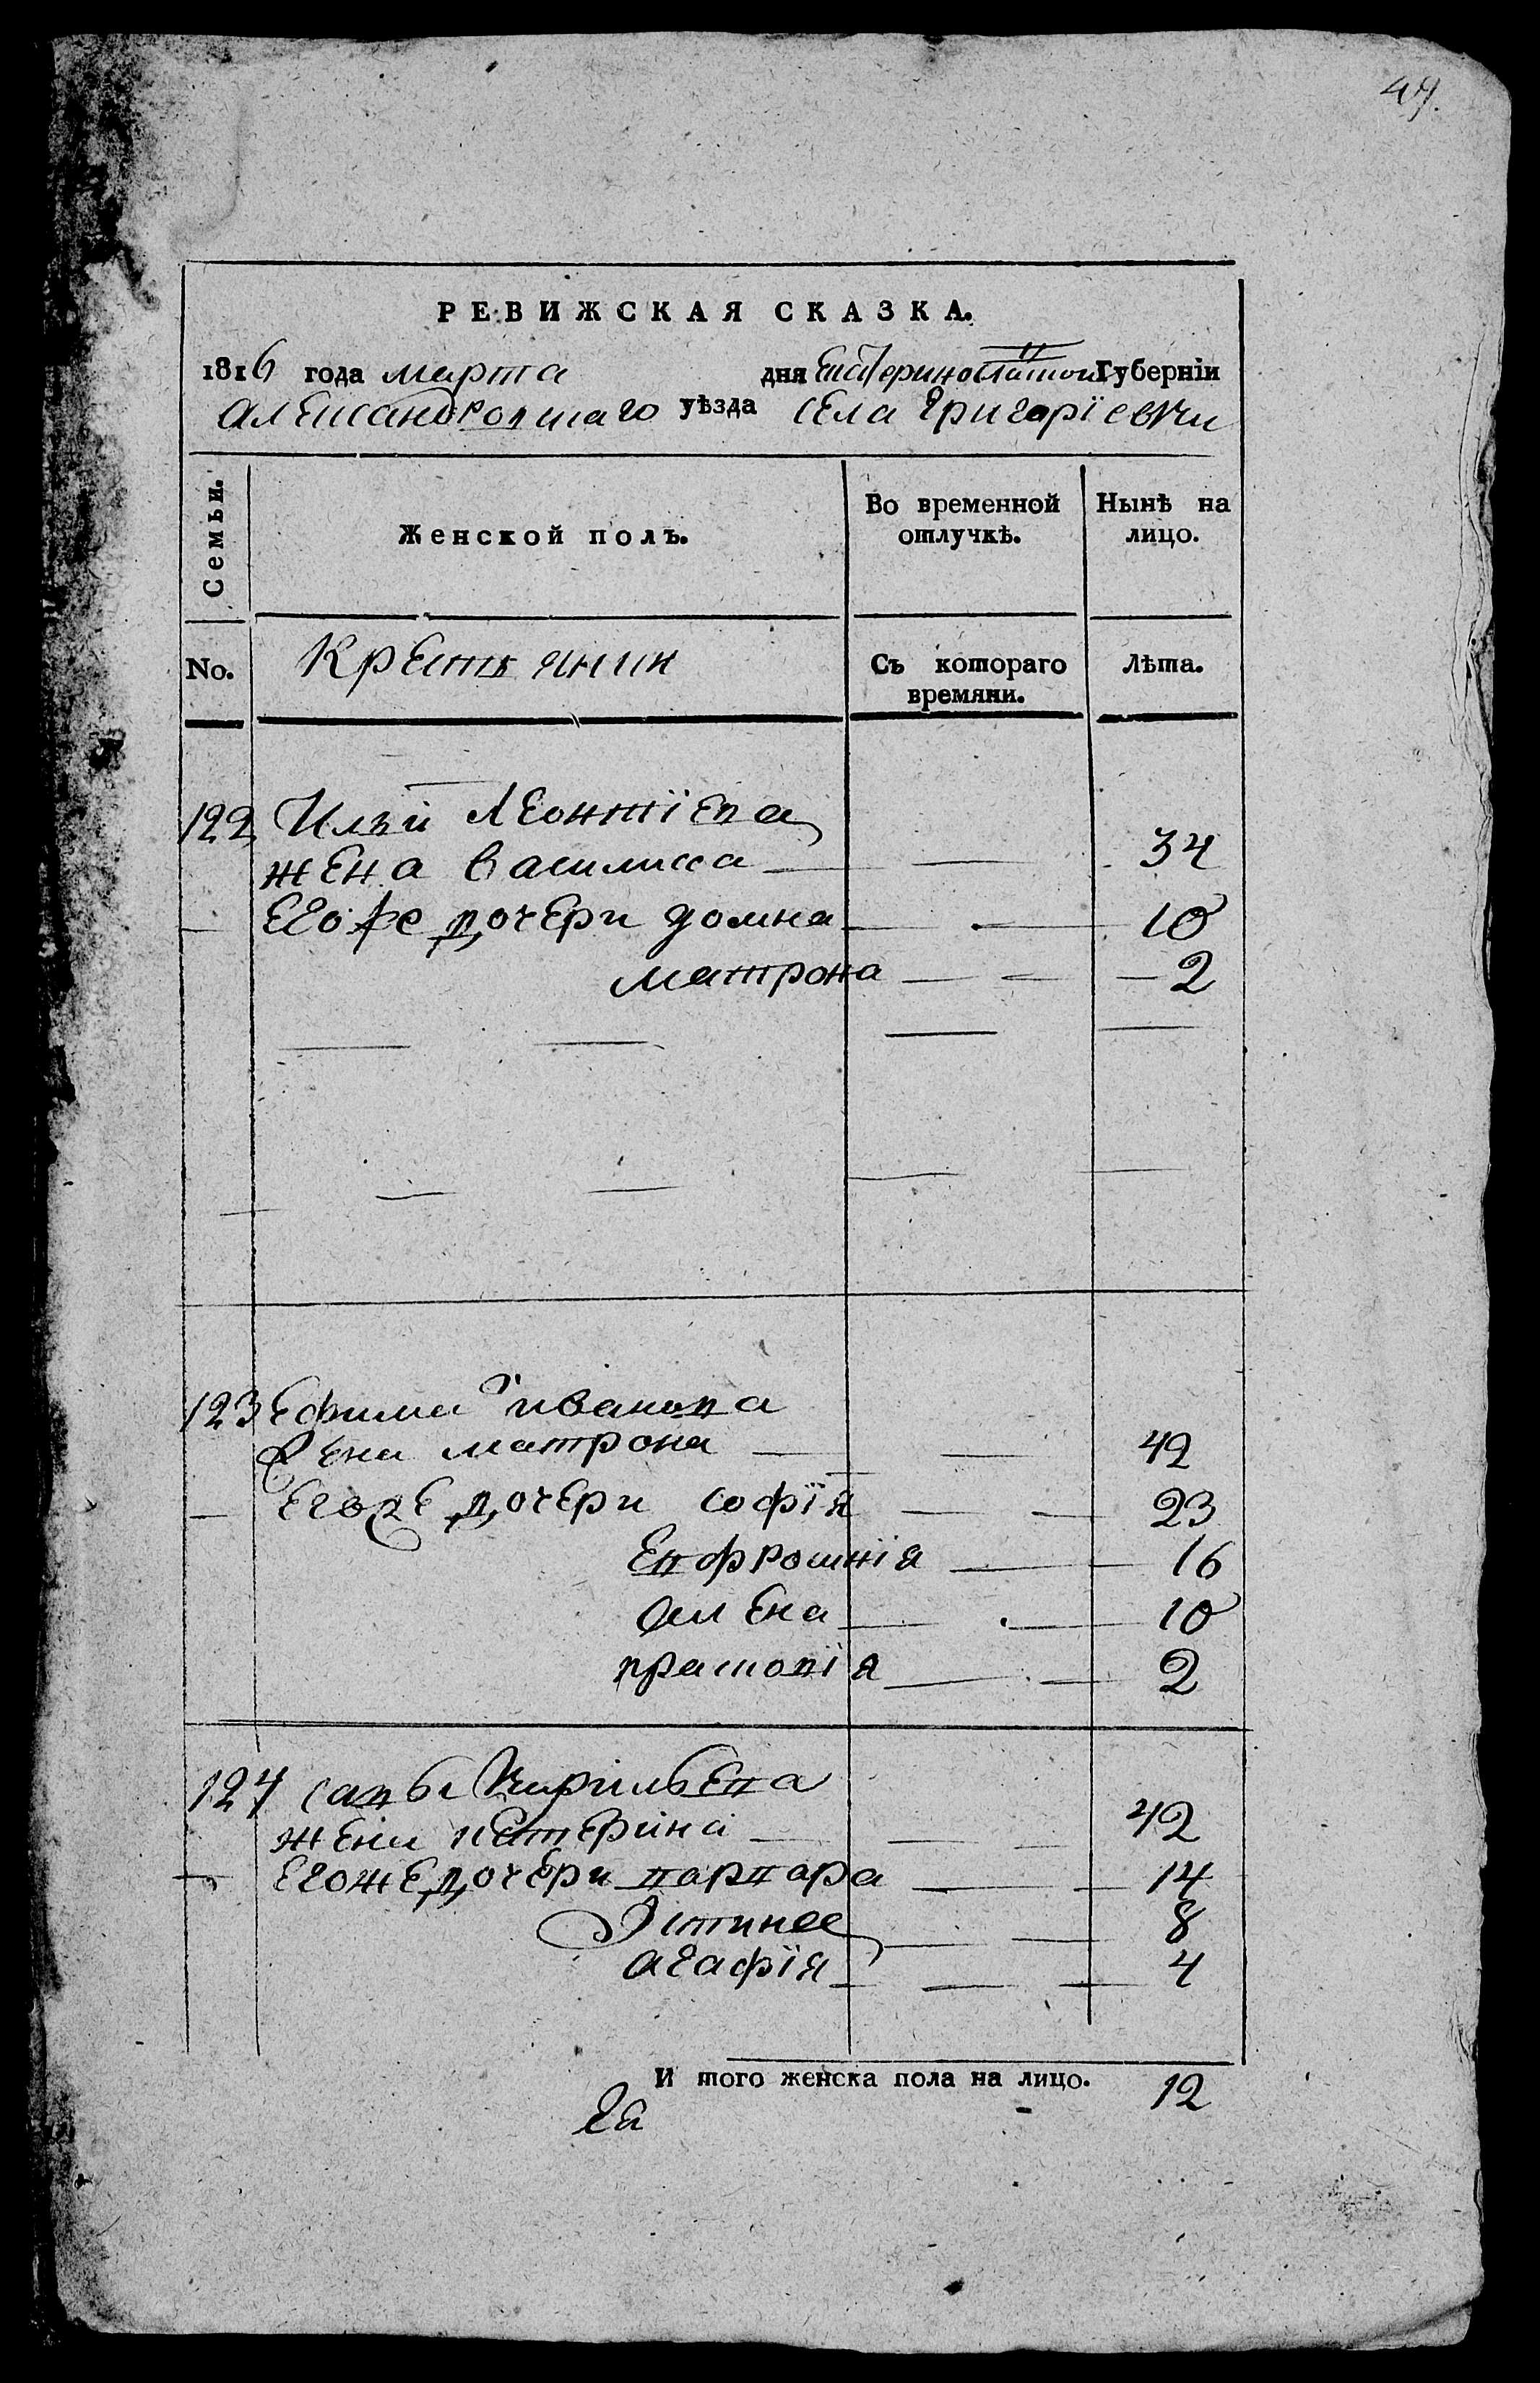 49.
РЕВИЖСКАЯ СКАЗКА.
1816 года марта дня Екатеринославской Губерніи
Александровскаго уѣзда села Григоріевки
Семьи. Женской полъ. Во временной отлучкѣ. Нынѣ на лицо.
No. Крестьянин Съ котораго времяни. Лѣта.
122 Ильи Леонтіева
жена Василиса 34
Егоже дочери домна 10
матрона 2
123 Ефима иванова
жена матрона 42
Егоже дочери софія 23
Евфросинія 16
Алена 10
прасковія 2
124 савы Кирильева
жена катерина 42
Егоже дочери варвара 14
Устинея 8
агафія 4
И того женска пола на лицо. 12